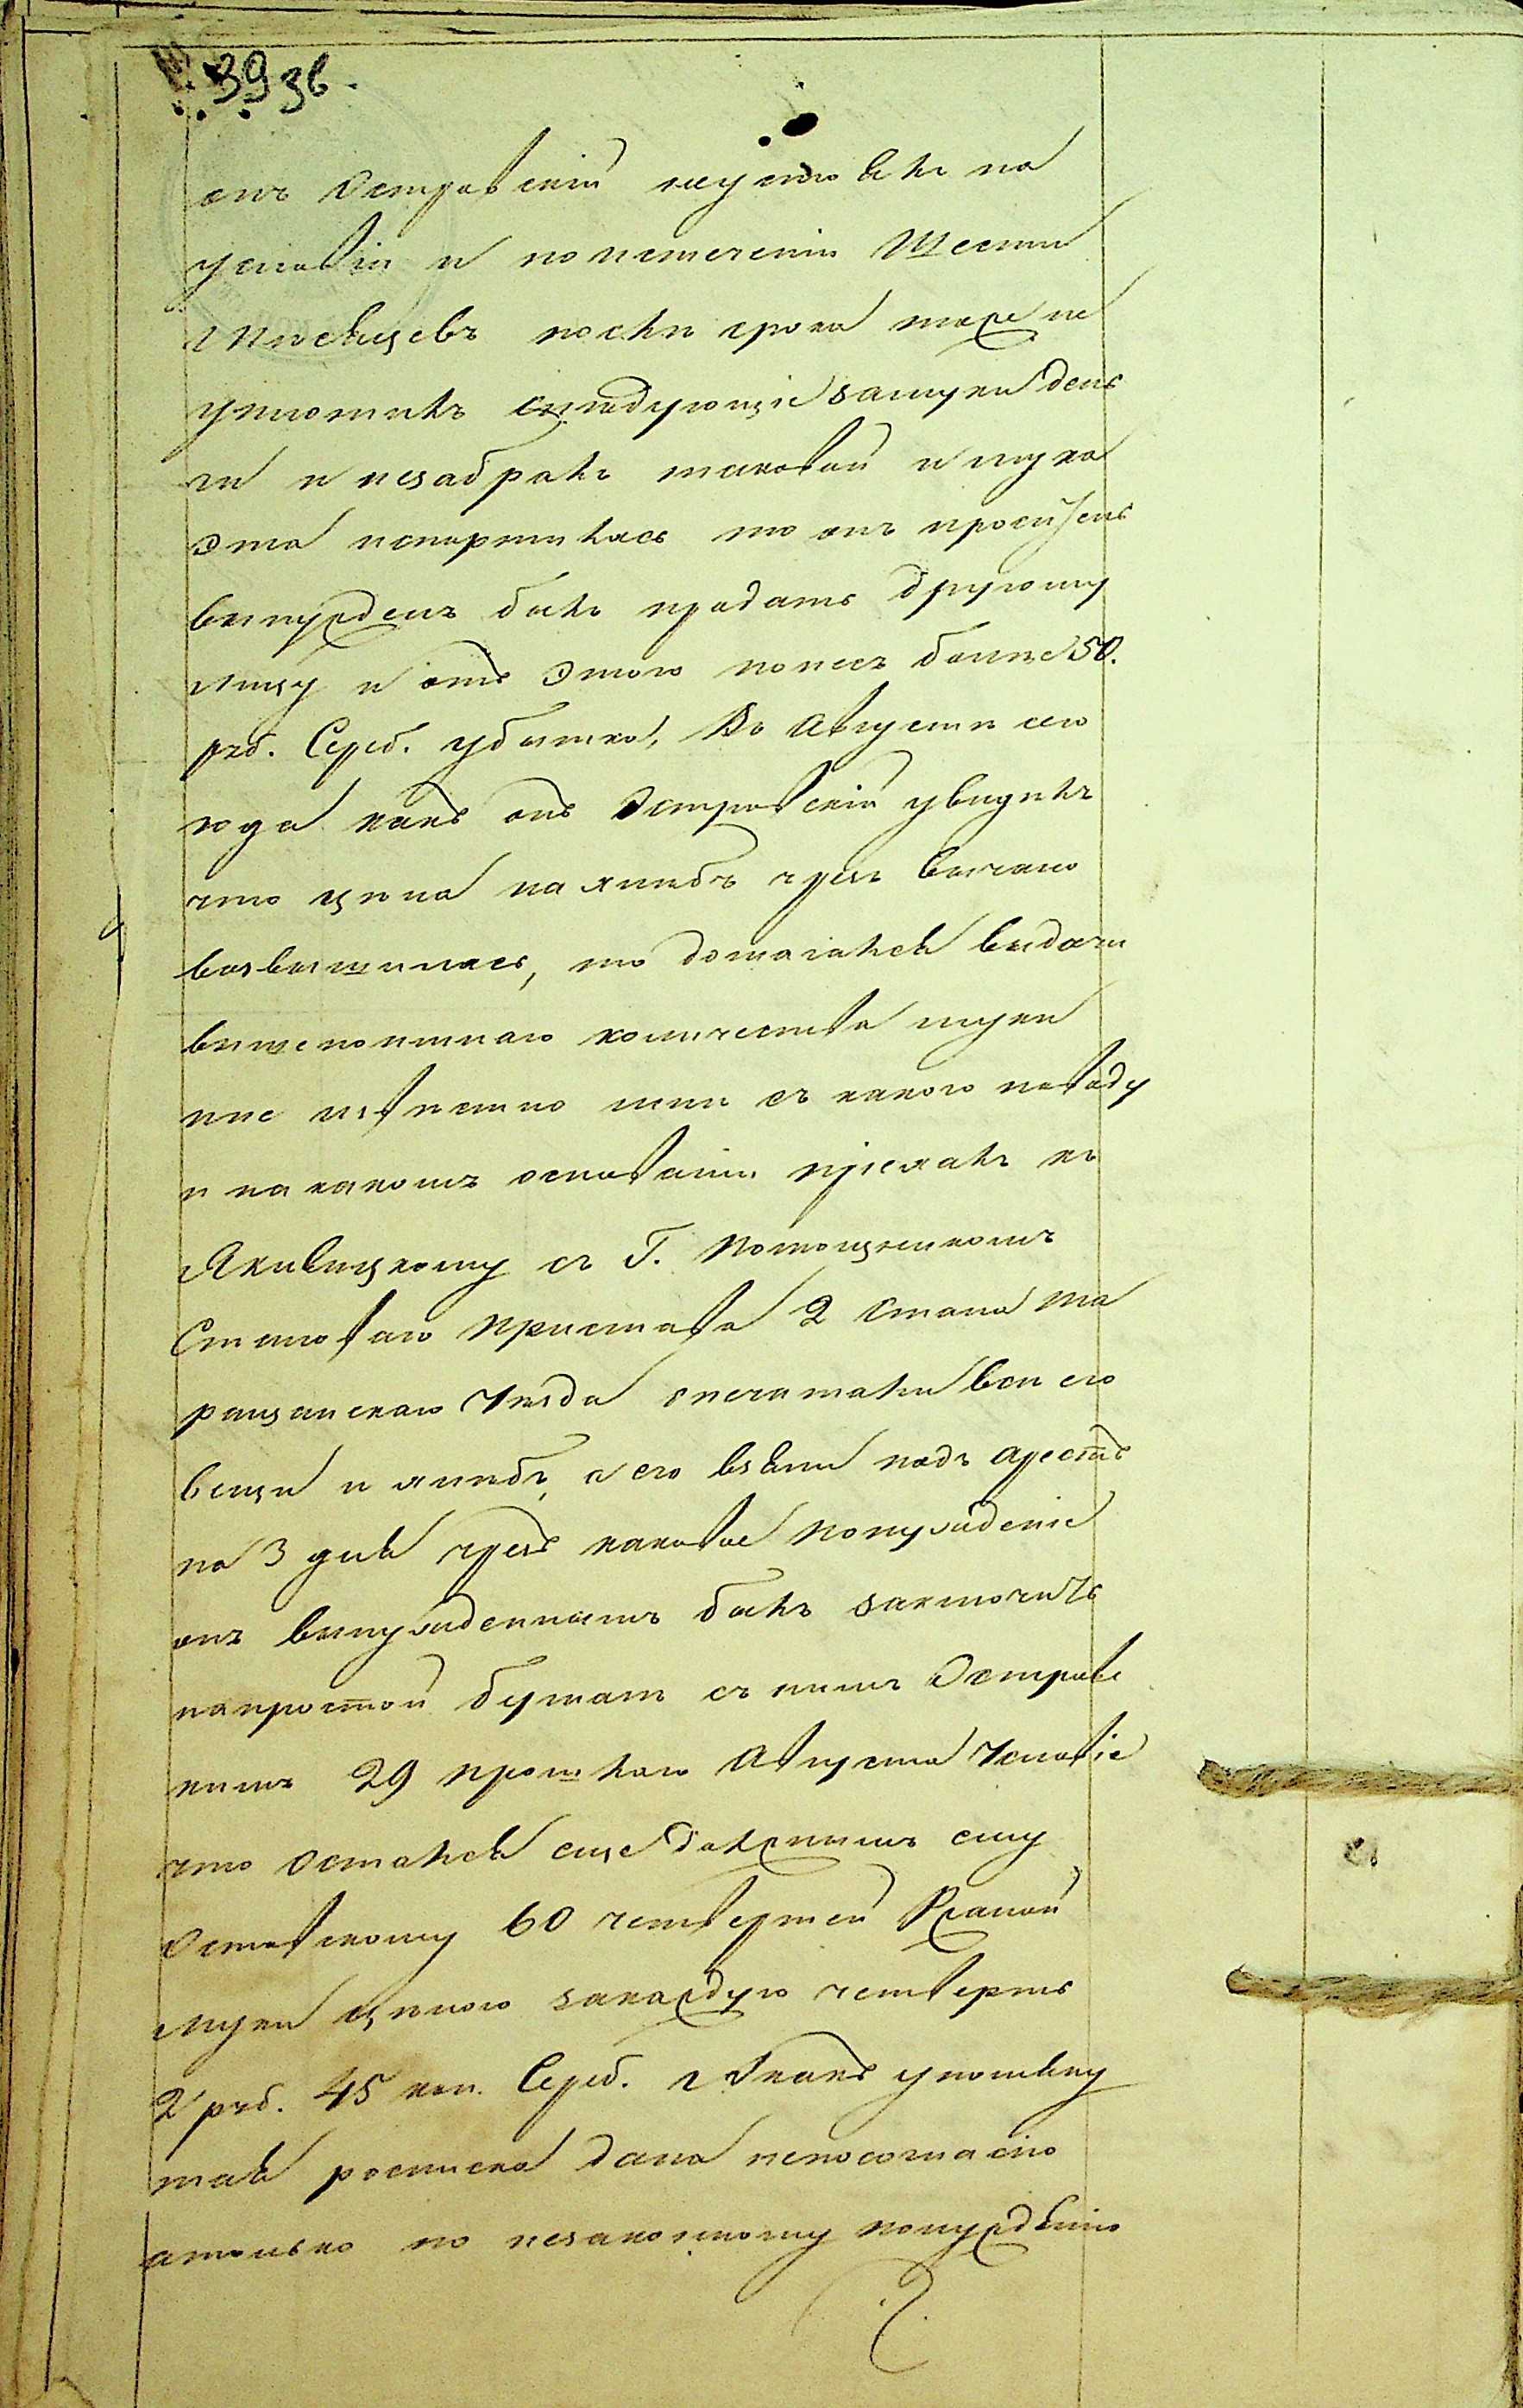 39 зв.
онъ Островскій неустоялъ на
условіи и по истеченіи Шести
Мѣсяцевъ послѣ срока также не
уплотилъ слѣдующіе за муки день
ги и незабралъ таковой и мука
эта испортилась то онъ
вынужденъ былъ продать другому
лицу и отъ этого понесъ болѣе 50.
руб. Сереб. убытка, Въ Августѣ сего
года какъ онъ Островскій увидѣлъ
что цѣна на хлѣбъ чрезъ вычано
возвысилась, то домагался выдачи
вышепоминаго количества муки
ине извѣстно мнѣ съ какого поводу
и на какомъ основаніи пріехалъ къ
Якивицкому съ Г. Помощникомъ
Становаго Пристава 2 Стана Та
ращанскаго Уѣзда опечатали всѣ его
вещи и хлѣбъ, а его взяли подъ арестъ
на 3 дня чрезъ каковое понужденіе
онъ вынужденнымъ былъ заключить
на простой бумагѣ съ нимъ Островс
кимъ 29 прошлаго Августа Условіе
что остался еще должнымъ ему
Оставскому 60 четвертей Ржаной
муки цѣною за каждую четверть
2 руб. 45 коп. Сереб. А какъ упомяну
тая росписка дана непосогласію
атолько по незаконному понужденію